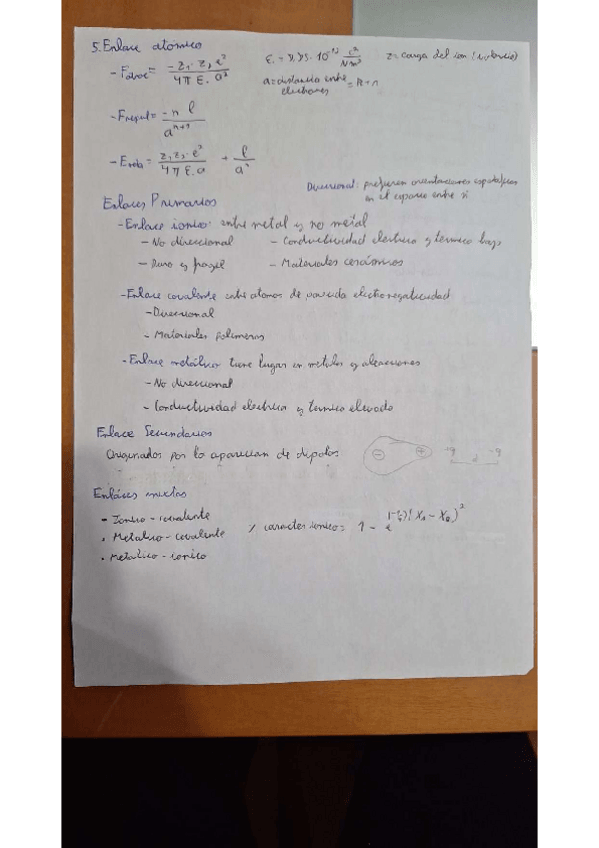 5. Enlace atómico
- Fatrac = -z₁ · z₂ · e² / 4π ε₀ a²
ε₀ = 8,85 · 10⁻¹² C² / Nm²
z = carga del ion (valencia)
a = distancia entre = R + r
- Frepul = -n b / aⁿ⁺¹
- Ered = z₁ z₂ · e² / 4π ε₀ a + b / aⁿ
Direccional: prefieren orientaciones específicas
en el espacio entre sí
Enlaces Primarios
- Enlace iónico: entre metal y no metal
- No direccional - Conductividad electrica y termica baja
- Duro y fragil - Materiales cerámicos
- Enlace covalente entre atomos de parecida electronegatividad
- Direccional
- Materiales polimeros
- Enlace metálico tiene lugar en metales y aleaciones
- No direccional
- Conductividad electrica y termica elevada
Enlace Secundarios
Originados por la aparicion de dipolos
- +
+q -q
d
Enláces mixtos
- Ionico - covalente
- Metalico - covalente
% caracter ionico = 1 - e^(-¼)(Xₐ - X_B)²
- Metalico - ionico